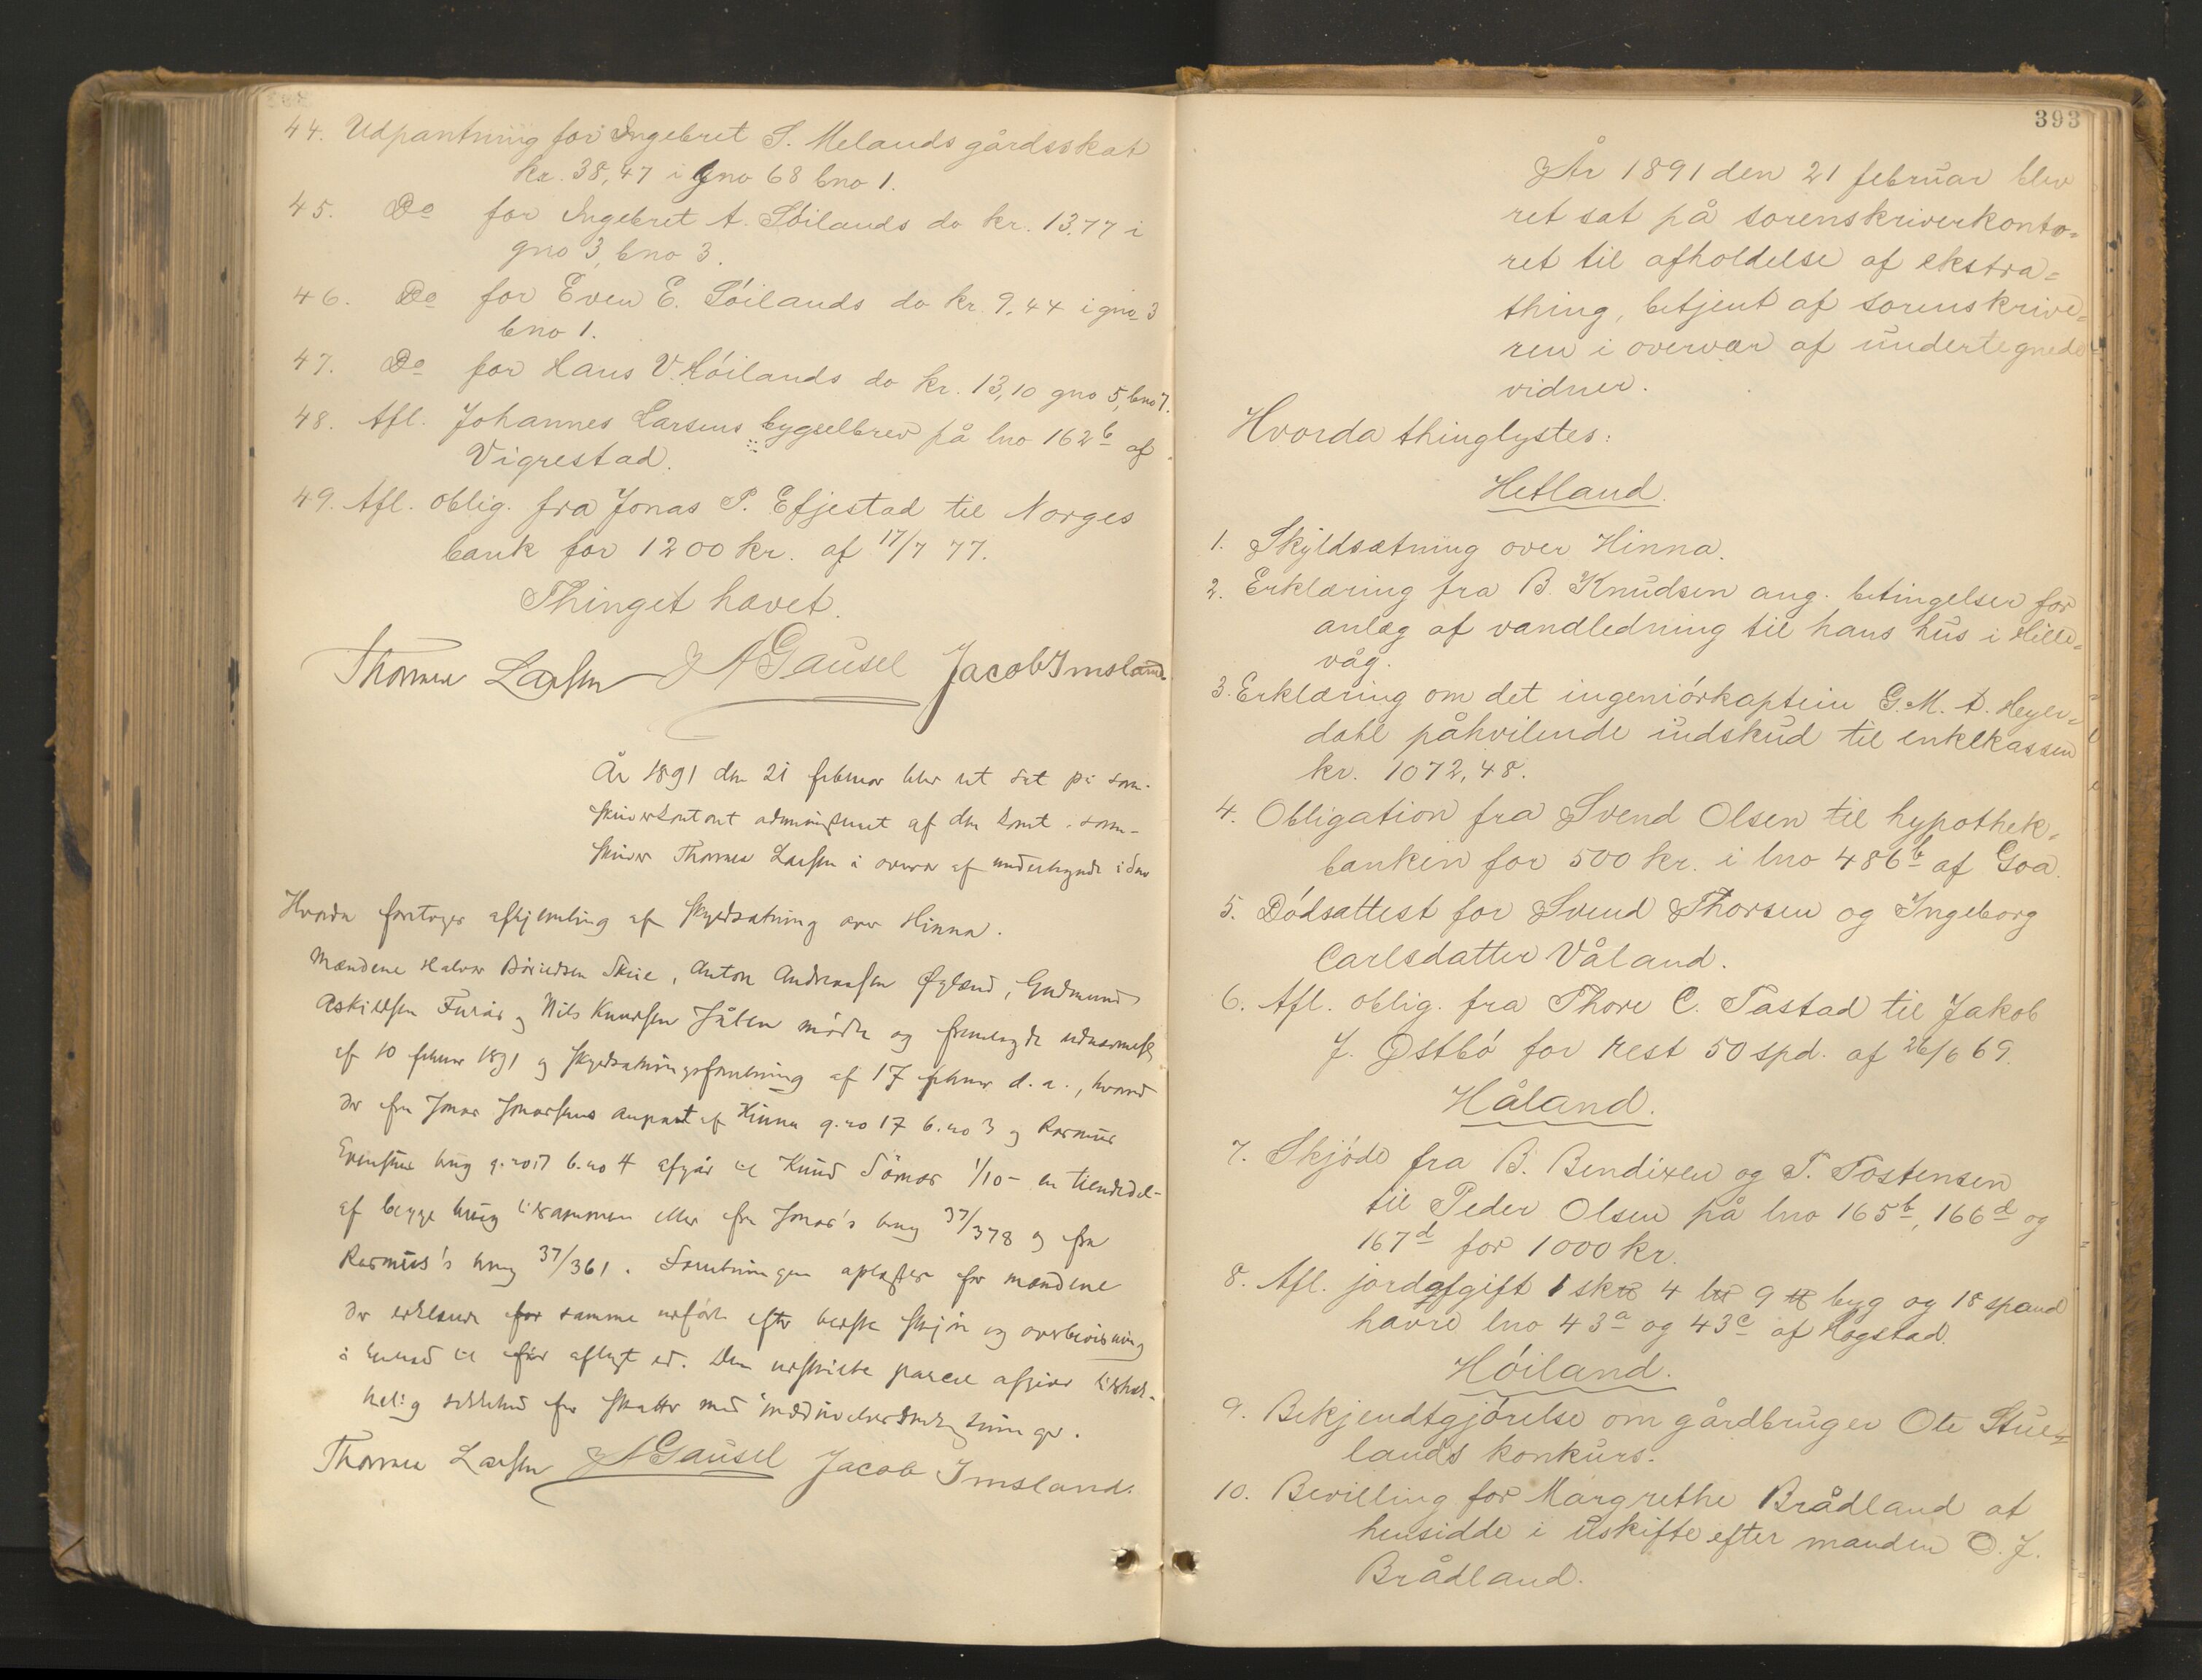 44. Udpantning for Ingebret S. Melands gårdsskat
kr. 38,47 i gno 68 bno 1.
45. Do for Ingebret A. Söilands do kr. 13.77 i
gno 3, bno 3.
46. Do for Even E. Söilands do kr. 9.44 i gno 3
bno 1.
47. Do for Hans V. Höilands do kr. 13,10 gno 5, bno 7.
48. Afl. Johannes Larsens bygselbrev på lno 162b af
Vigrestad.
49. Afl. oblig. fra Jonas P. Efjestad til Norges
bank for 1200 kr. af 17/7 77.
Thinget hævet.
Thomas Larsen A Gausel Jacob Imsland
År 1891 den 21 februar blev ret sat på soren-
skriverkontoret administreret af den konst. soren-
skriver Thomas Larsen i overvær af undertegnede vidner
Hvorda foretoges afhjemling af skyldsætning over Hinna.
Mændene Halvor Skeie, Anton Andreassen Øglænd, Gudmund
Askildsen Furås og Nils Knudsen Jåtten mødte og fremlagde
af 10 februar 1891 og skyldsætningsforretning af 17 februar d. a., hvorved
der fra Jonas Jonassens anpart af Hinna g. no 17 b. no 3 og Rasmus
brug g. no 17 b. no 4 afgår til Knud Sömas 1/10 - en tiendedel -
af begge brug tilsammen eller fra Jonas's brug 37/378 og fra
Rasmus's brug 37/361. Forretningen oplæstes for mændene
der erklærede samme udført efter bedste skjön og overbevisning
i henhold til før aflagt ed. Den udskilte parcel afgiver tilstræk-
kelig sikkerhed for skatter med
Thomas Larsen A Gausel Jacob Imsland.
393
År 1891 den 21 februar blev
ret sat på sorenskriverkonto-
ret til afholdelse af ekstra-
thing, betjent af sorenskrive-
ren i overvær af undertegnede
vidner.
Hvorda thinglystes:
Hetland.
1. Skyldsætning over Hinna.
2. Erklæring fra B. Knudsen ang. betingelser for
anlæg af vandledning til hans hus i Hille-
våg.
3. Erklæring om det ingeniörkaptein G. M. A. Heyer-
dahl påhvilende indskud til enkekassen
kr. 1072,48.
4. Obligation fra Svend Olsen til hypothek-
banken for 500 kr. i lno 486b af Goa.
5. Dödsattest for Svend Thorsen og Ingeborg
Carlsdatter Våland.
6. Afl. oblig. fra Thore C. Tastad til Jakob
J. Østbö for rest 50 spd. af 26/6 69.
Håland.
7. Skjöde fra B. Bendixen og T. Tostensen
til Peder Olsen på lno 165b, 166d og
167d for 1000 kr.
8. Afl. jordafgift 1 sk℔ 4 b℔ 9 ℔ byg og 18 spand
havre lno 43a og 43c af Hogstad.
Höiland.
9. Bekjendtgjörelse om gårdbruger Ole Stue-
lands konkurs.
10. Bevilling for Margrethe Brådland at
hensidde i uskifte efter manden O. J.
Brådland.